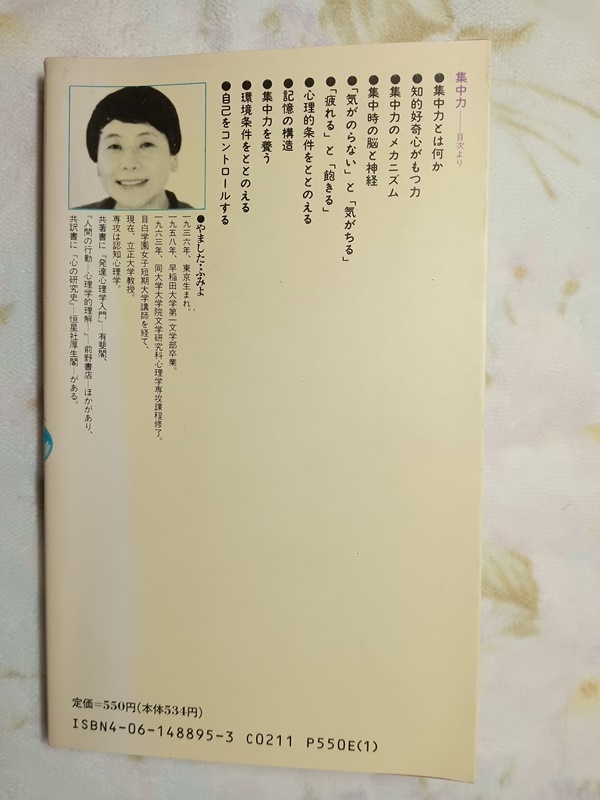 集中力──目次より
●集中力とは何か
●知的好奇心がもつ力
●集中力のメカニズム
●集中時の脳と神経
●「気がのらない」と「気がちる」
●「疲れる」と「飽きる」
●心理的条件をととのえる
●記憶の構造
●集中力を養う
●環境条件をととのえる
●自己をコントロールする
●やました・ふみよ
一九三六年、東京生まれ。
一九五八年、早稲田大学第一文学部卒業。
一九六三年、同大学大学院文学研究科心理学専攻課程修了。
目白学園女子短期大学講師を経て、
現在、立正大学教授。
専攻は認知心理学。
共著書に『発達心理学入門』─有斐閣、
『人間の行動─心理学的理解─』─前野書店─ほかがあり、
共訳書に『心の研究史』─恒星社厚生閣─がある。
定価=550円(本体534円)
ISBN4-06-148895-3 C0211 P550E(1)